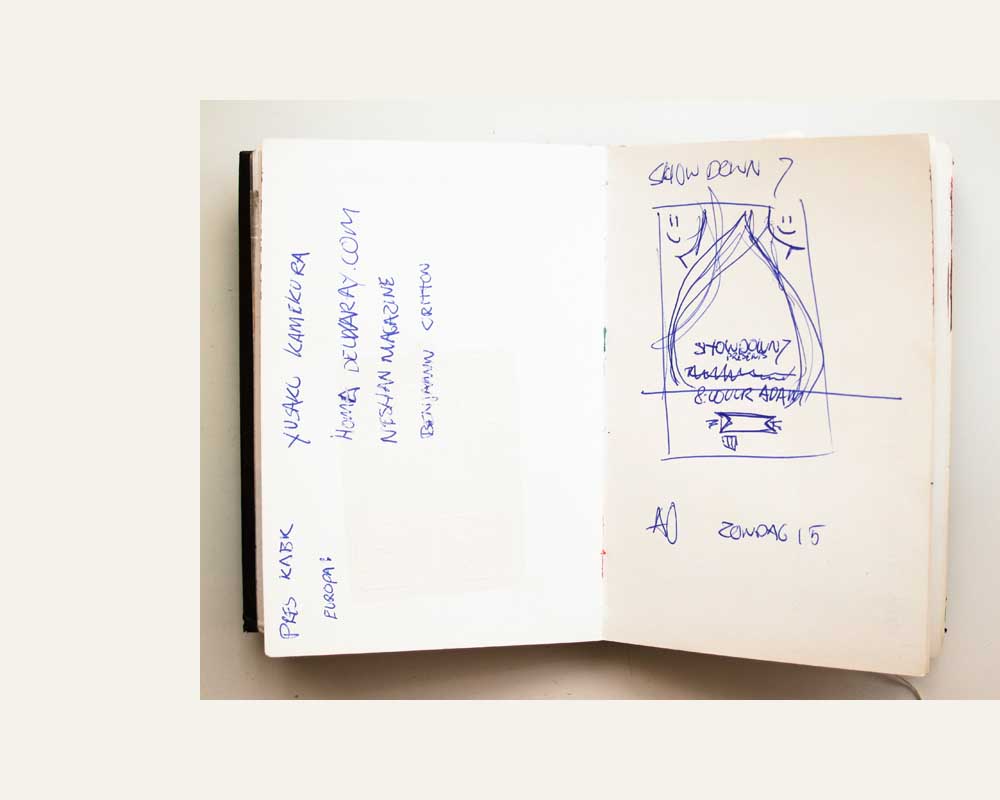 PRES KABK
YUSAKU KAMEKURA
EUROPA:
HOMA DELVARAY.COM
NESHAN MAGAZINE
BENJAMIN CRITTON
SHOWDOWN 7
SHOWDOWN 7
PRESENTS
& ADAM
A0
ZONDAG 15